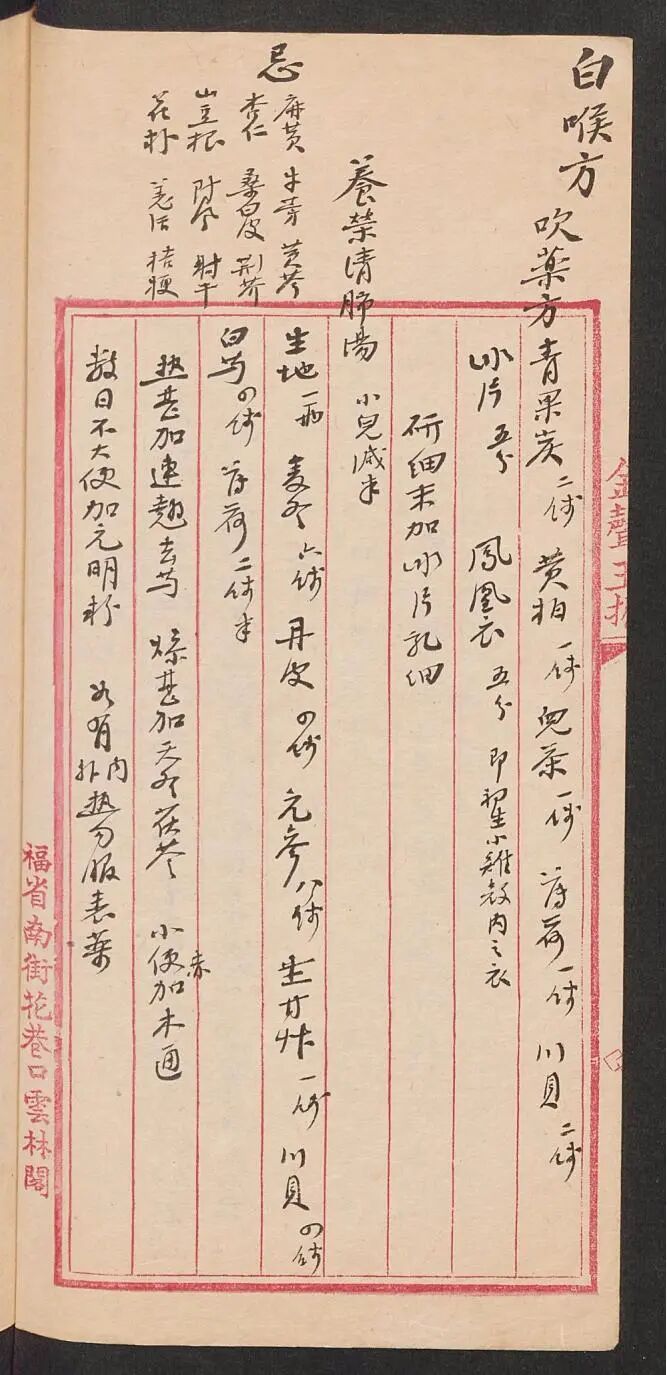 白喉方
吹薬方青果炭 二錢 黄柏 一錢 兒茶 一錢 薄荷 一錢 川貝 二錢
冰片 五分 鳳凰衣 五分 即 小雞殼内之衣
研細末加冰片乳細
養榮清肺湯 小兒減半
生地 一兩 麦冬 六錢 丹皮 四錢 元參 八錢 生甘艸 一錢 川貝 四錢
白芍 四錢 薄荷 二錢半
热甚加連翹去芍 燥甚加天冬茯苓 小便赤加木通
数日不大便加元明粉 如有内外热勿服表薬
忌
麻黄 牛蒡 黄芩
杏仁 桑白皮 荆芥
山豆根 防風 射干
花朴 羌活 桔梗
金聲玉振
福省南街花巷口雲林閣